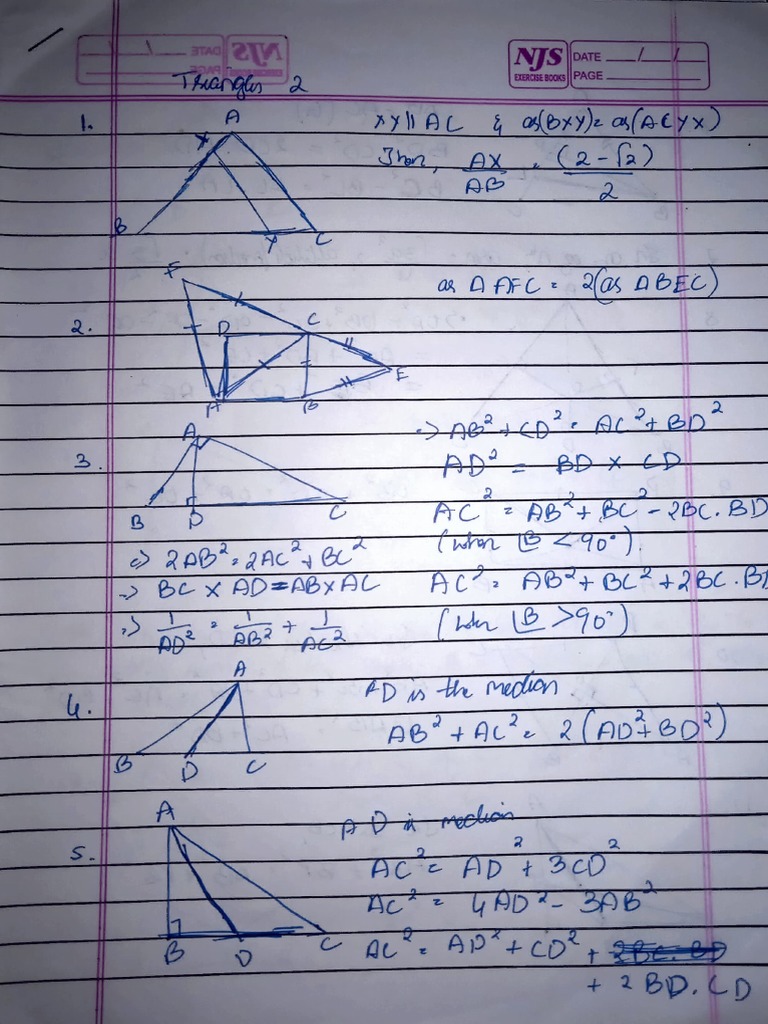 NJS
EXERCISE BOOKS
DATE / /
PAGE
Triangles 2
1.
A
X
B
Y
C
XY || AC & as(BXY) = as(ACYX)
Then, AX/AB = (2 - √2)/2
2.
F
D
C
A
B
E
as Δ AFC = 2(as ΔBEC)
3.
A
B
D
C
=> AB² + CD² = AC² + BD²
AD² = BD × CD
AC² = AB² + BC² - 2BC.BD
(when ∠B < 90°)
AC² = AB² + BC² + 2BC.BD
(when ∠B > 90°)
=> 2AB² = 2AC² + BC²
=> BC × AD = AB × AC
=> 1/AD² = 1/AB² + 1/AC²
4.
A
B
D
C
AD is the median.
AB² + AC² = 2(AD² + BD²)
5.
A
B
D
C
AD is median
AC² = AD² + 3CD²
AC² = 4AD² - 3AB²
AC² = AD² + CD² + 2BC.BD
+ 2BD.CD